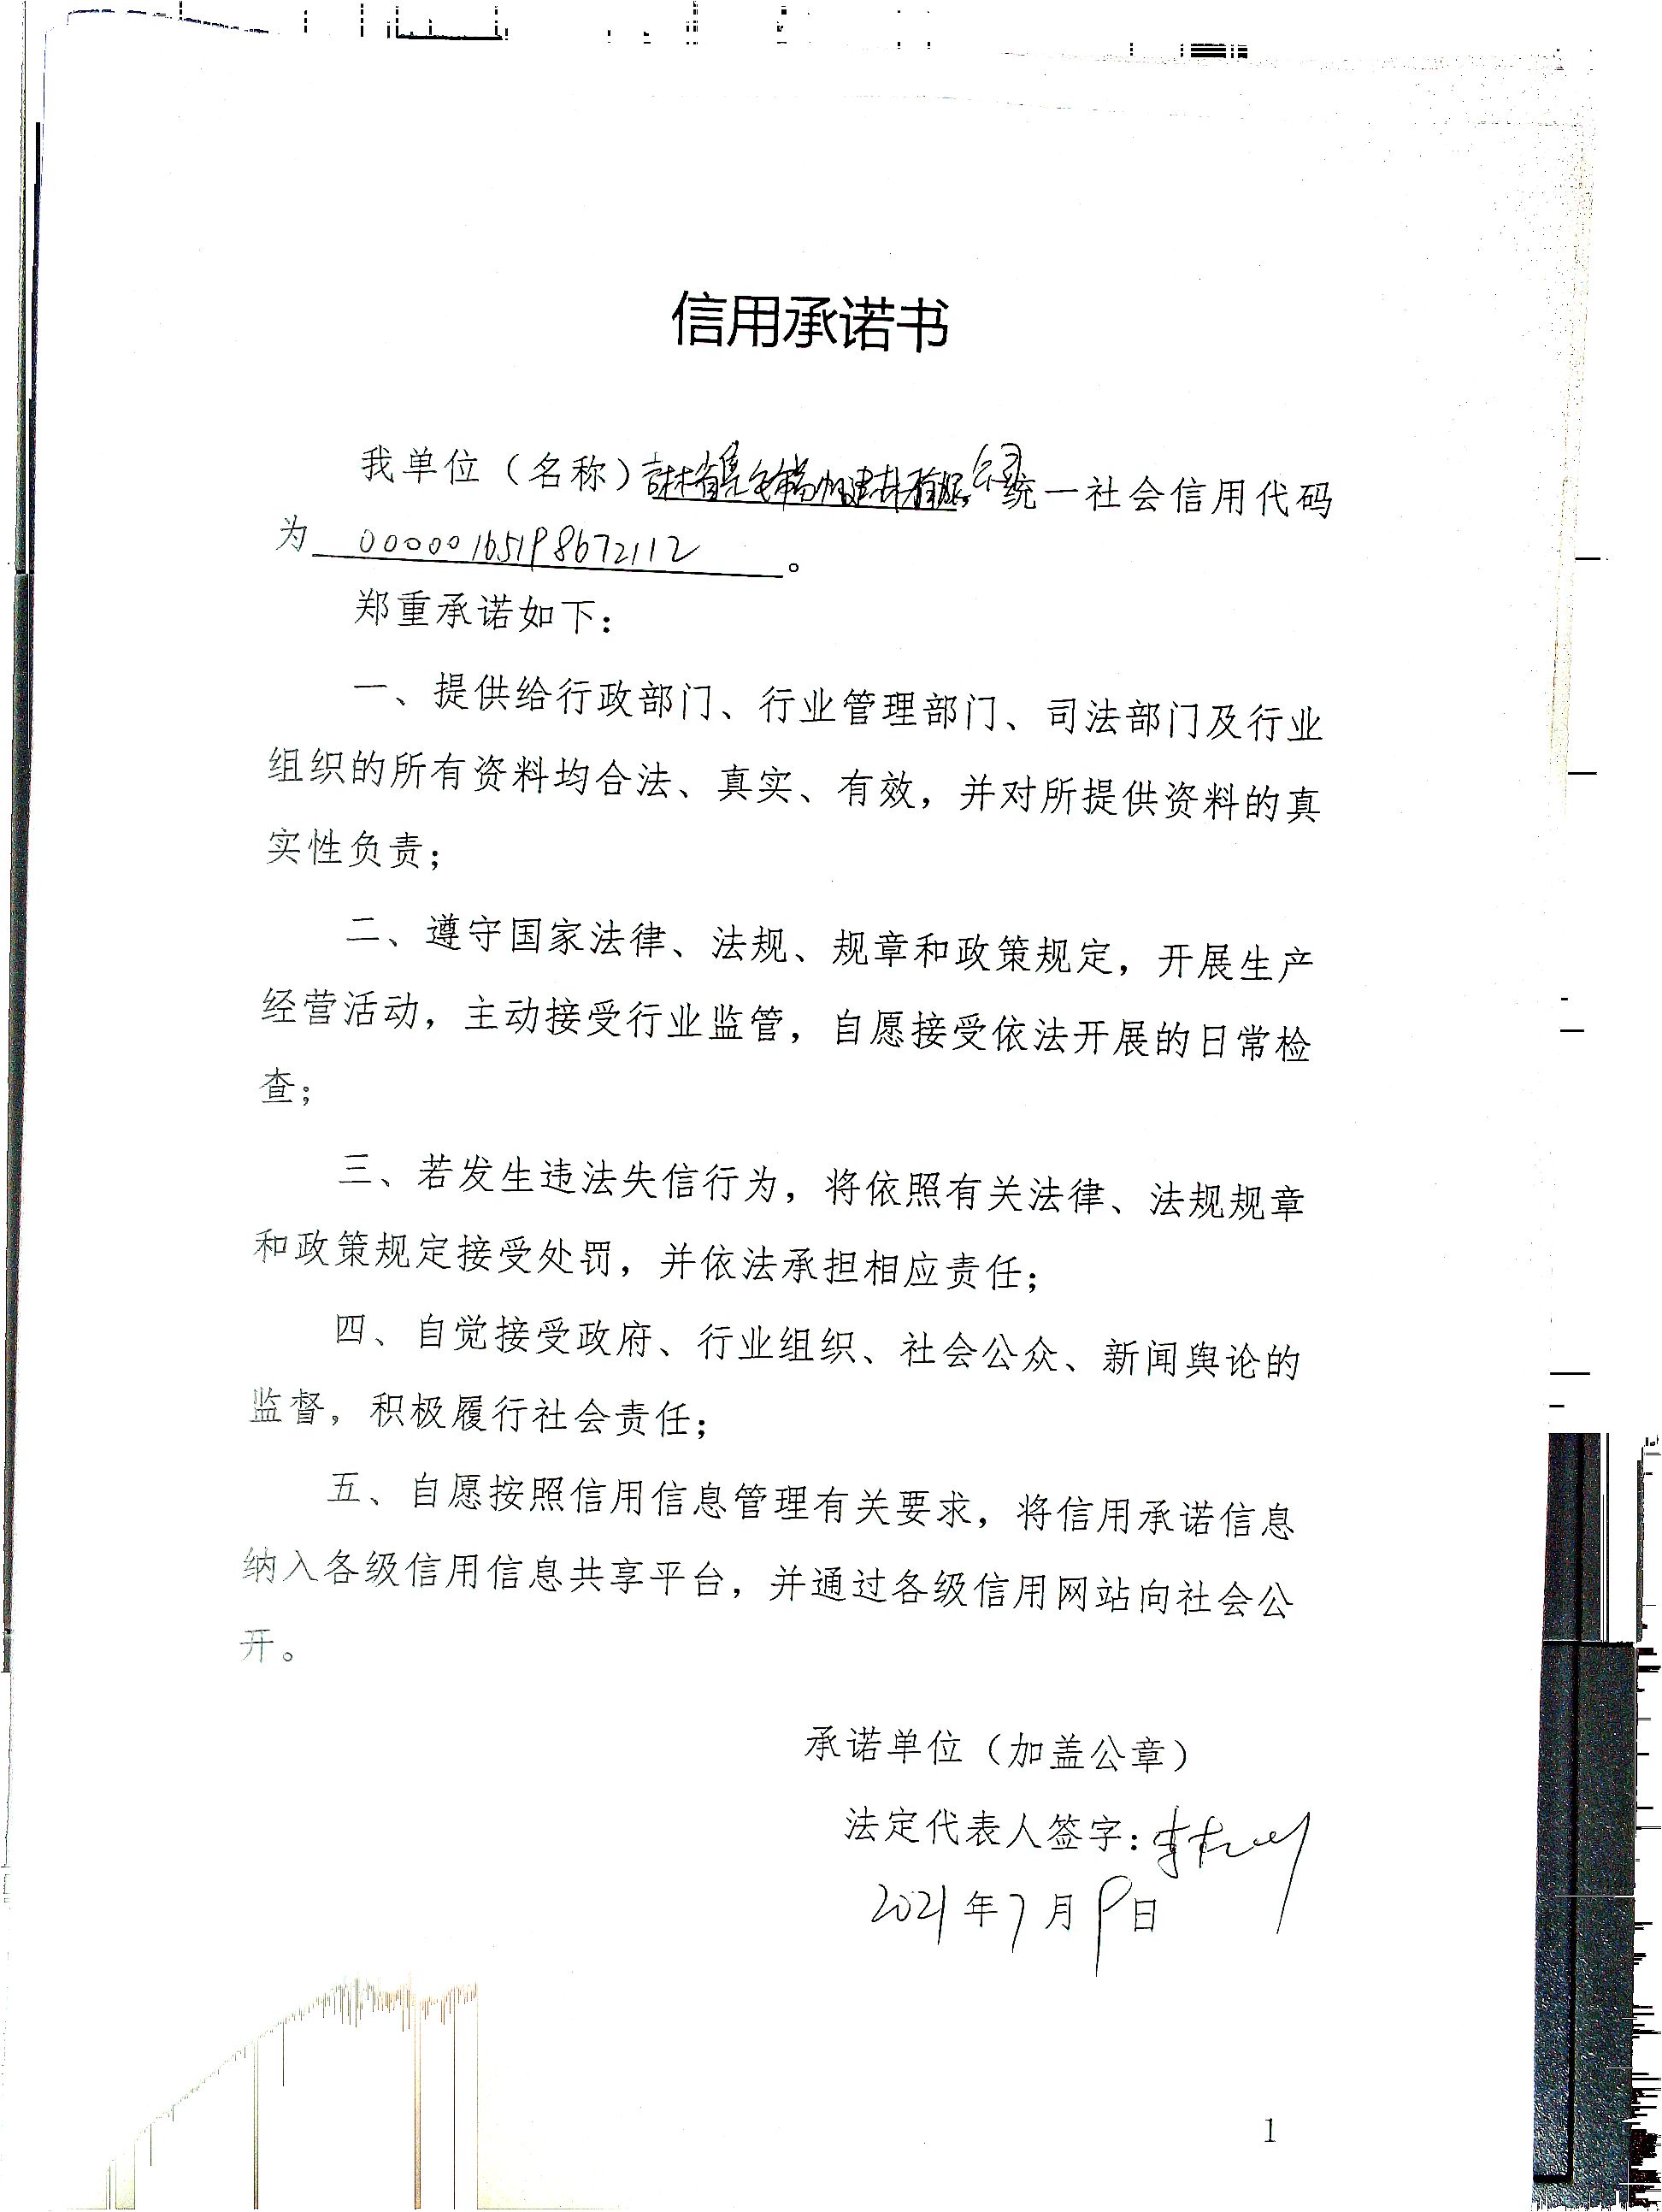 信用承诺书
我单位（名称）吉林省 建材有限公司统一社会信用代码
为 00000165198672112 。
郑重承诺如下：
一、提供给行政部门、行业管理部门、司法部门及行业
组织的所有资料均合法、真实、有效，并对所提供资料的真
实性负责；
二、遵守国家法律、法规、规章和政策规定，开展生产
经营活动，主动接受行业监管，自愿接受依法开展的日常检
查；
三、若发生违法失信行为，将依照有关法律、法规规章
和政策规定接受处罚，并依法承担相应责任；
四、自觉接受政府、行业组织、社会公众、新闻舆论的
监督，积极履行社会责任；
五、自愿按照信用信息管理有关要求，将信用承诺信息
纳入各级信用信息共享平台，并通过各级信用网站向社会公
开。
承诺单位（加盖公章）
法定代表人签字：
2021年7月9日
1